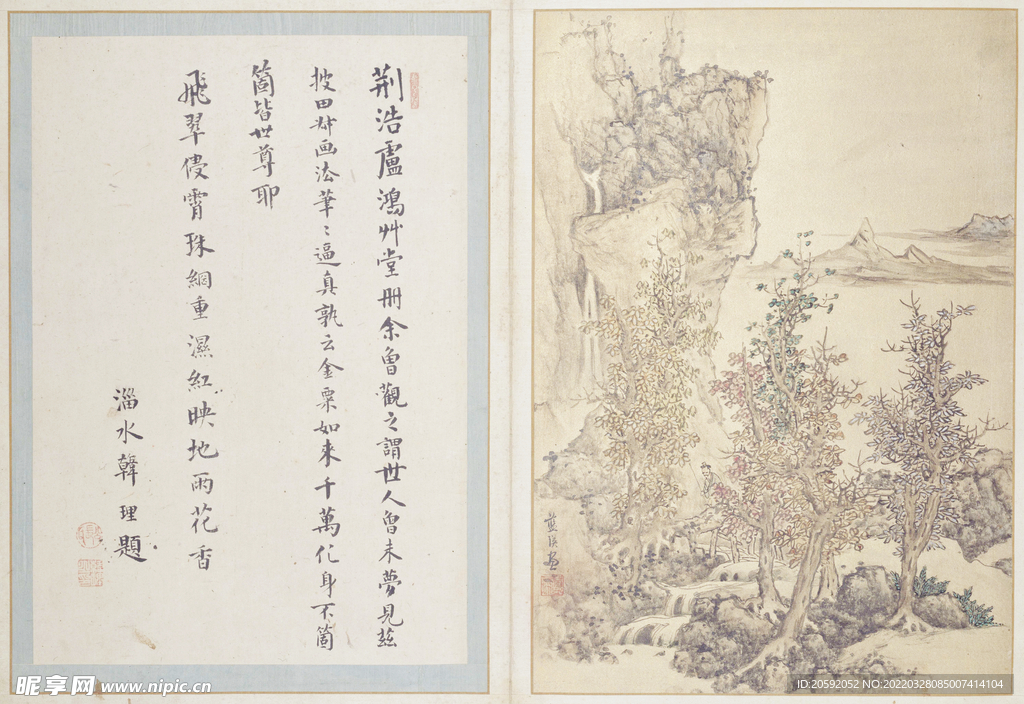 荆浩盧鴻艸堂册余曾觀之謂世人曾未夢見茲
披田叔画法筆〻逼真孰云金粟如来千萬化身不箇
箇皆世尊耶
飛翠侵霄珠網重濕紅映地雨花香
淄水韓理題
藍瑛画
昵享网 www.nipic.cn
ID:20592052 NO:20220328085007414104